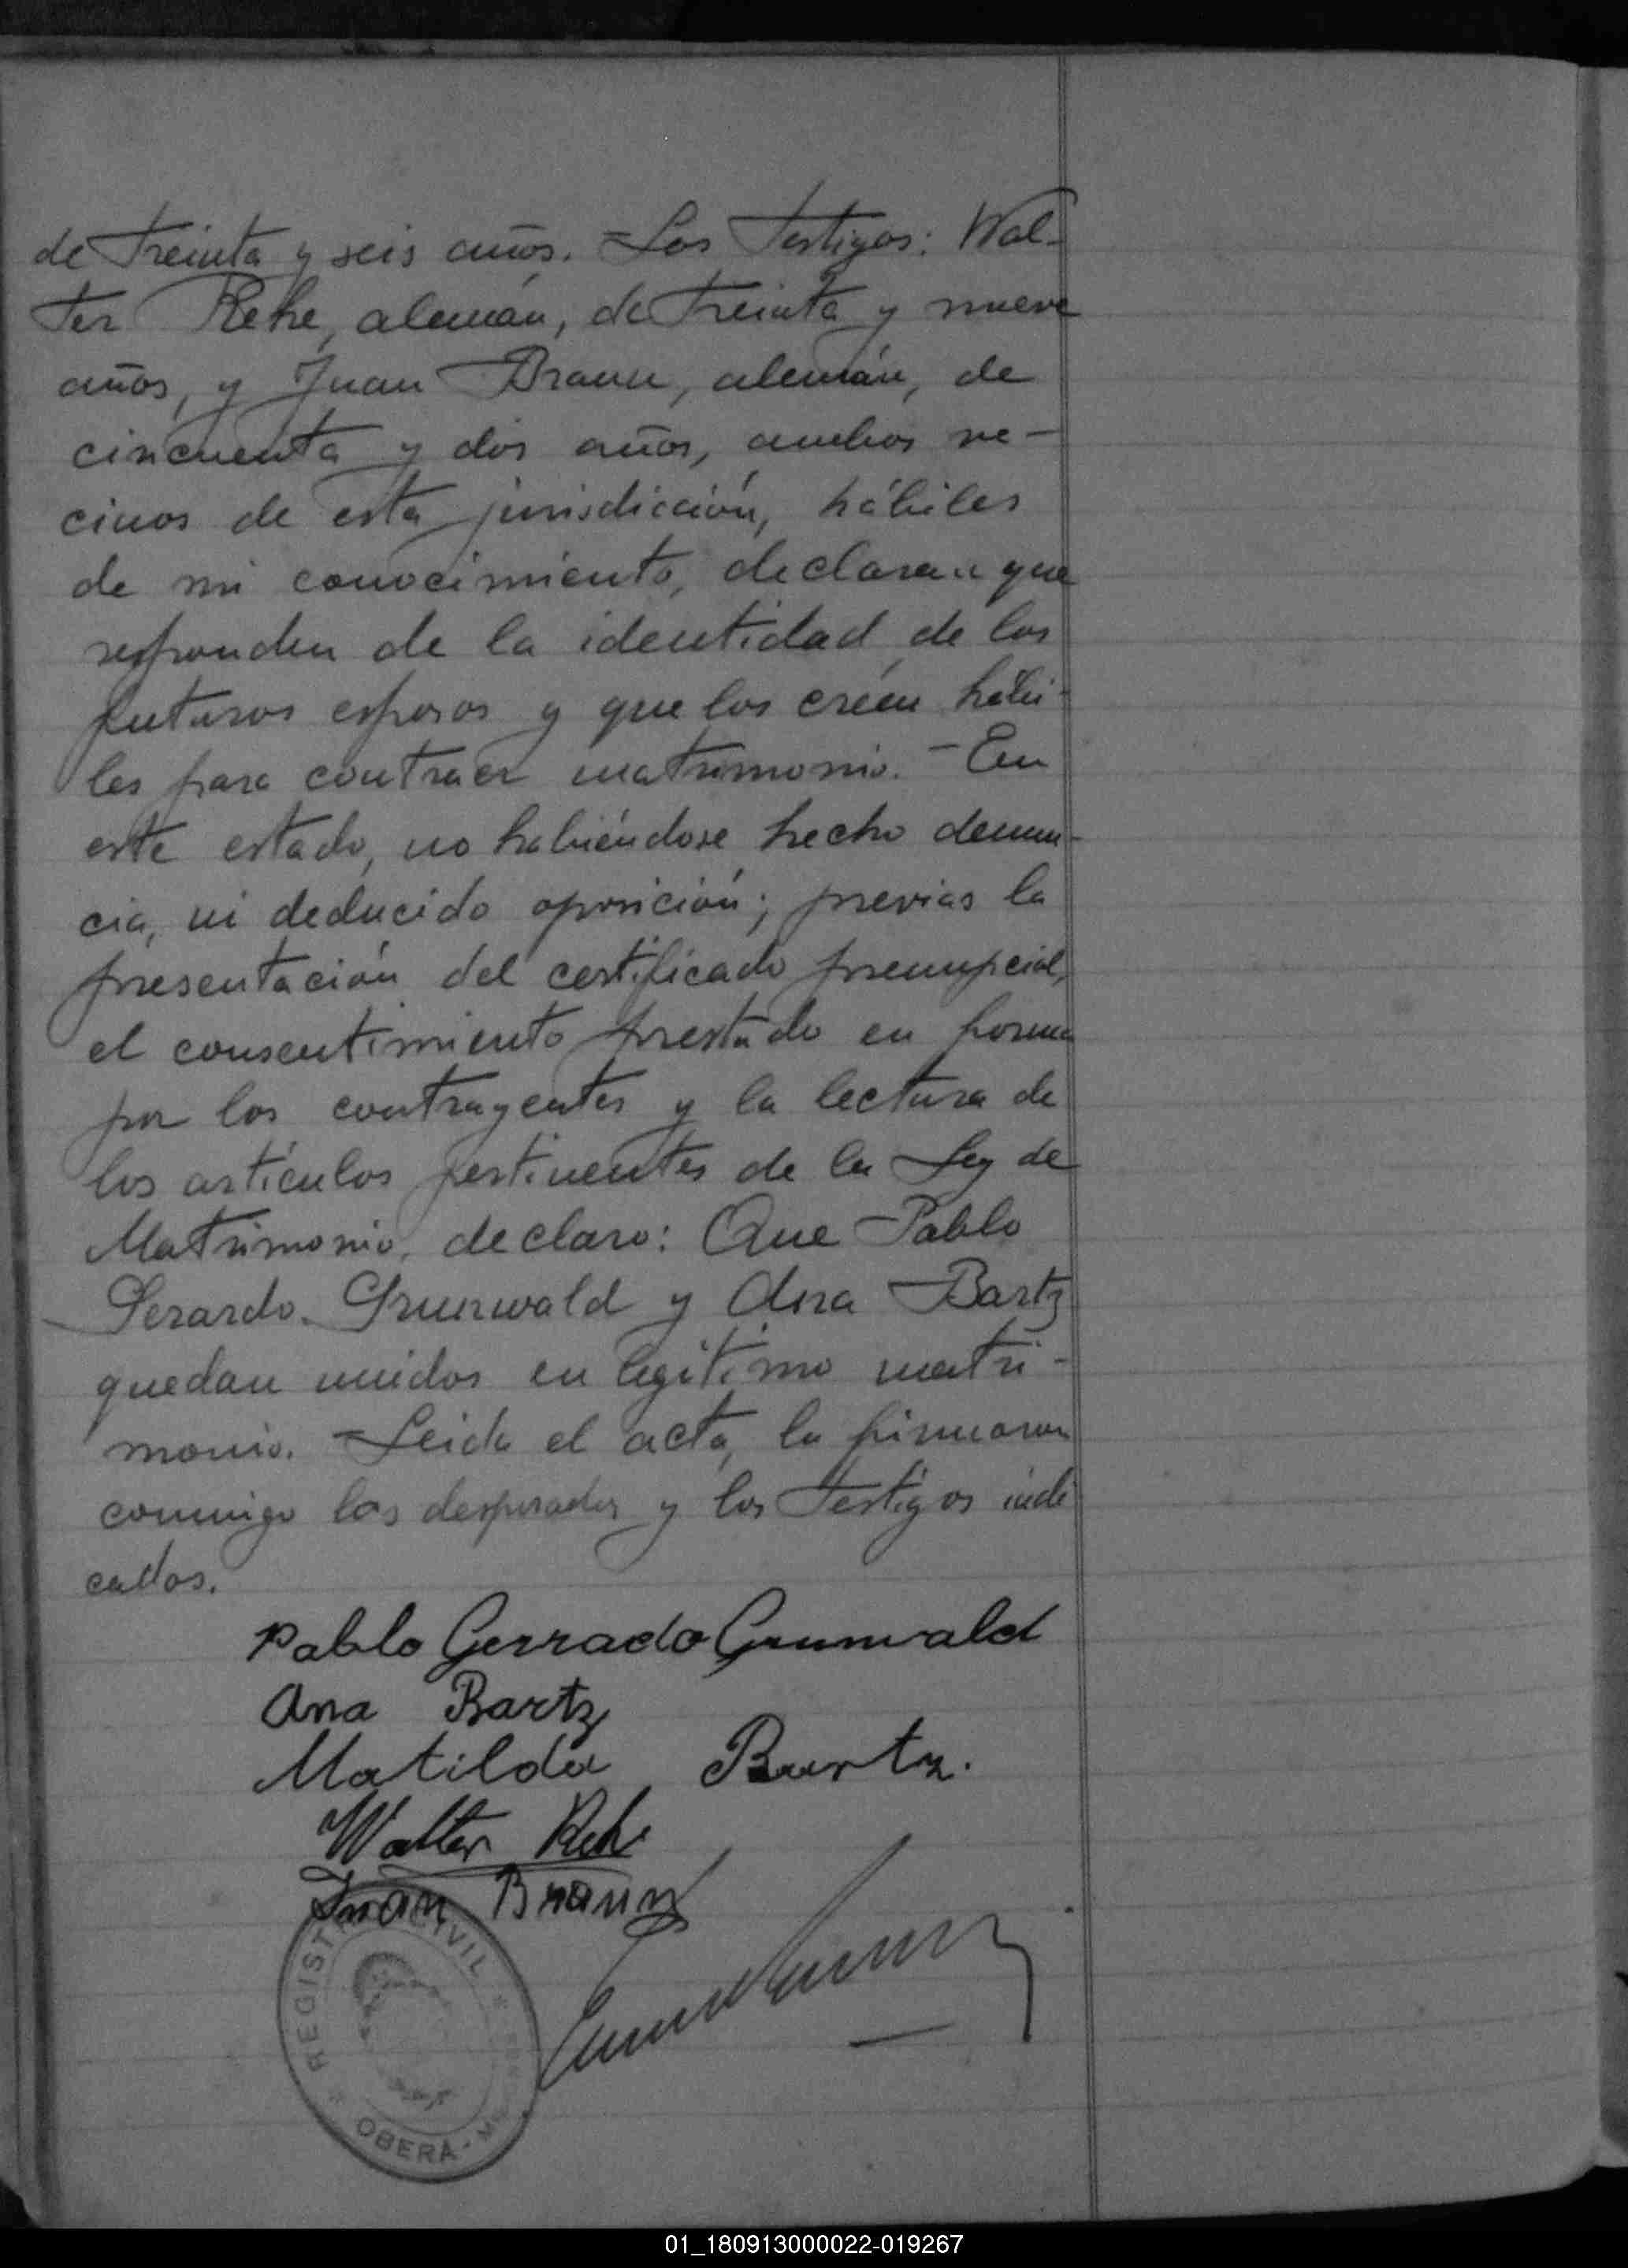 de treinta y seis años. - Los testigos: Wal-
ter Rehe, alemán, de treinta y nueve
años, y Juan Braun, alemán, de
cincuenta y dos años, ambos ve-
cinos de esta jurisdicción, hábiles
de mi conocimiento, declaran que
responden de la identidad de los
futuros esposos y que los créen hábi-
les para contraer matrimonio. - En
este estado, no habiéndose hecho denun-
cia, ni deducido oposición; previas la
presentación del certificado prenupcial,
el consentimiento prestado en forma
por los contrayentes y la lectura de
los artículos pertinentes de la Ley de
Matrimonio, declaro: Que Pablo
Gerardo Grunwald y Ana Bartz
quedan unidos en legítimo matri-
monio. - Leida el acta, la firmaron
conmigo los desposados y los testigos indi
cados.
Pablo Gerrado Grunwald
Ana Bartz
Matilda Bartz.
Walter Rehe
Juan Braun
REGISTRO CIVIL
OBERÁ - MISIONES
01_180913000022-019267